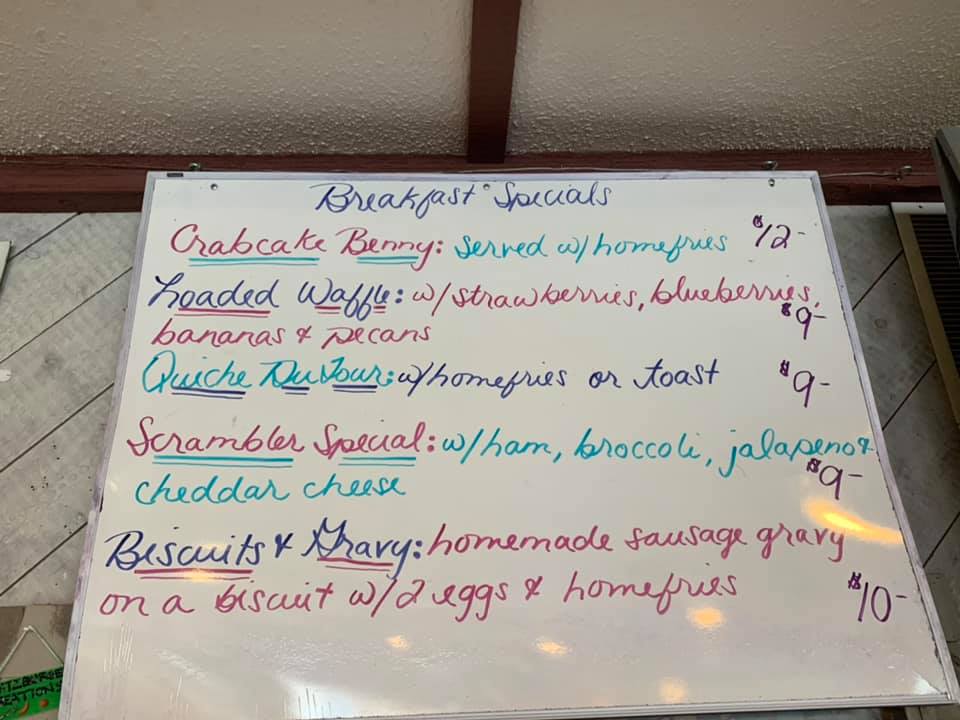 Breakfast Specials
Crabcake Benny: served w/homefries $12-
Loaded Waffle: w/strawberries, blueberries,
bananas & pecans $9-
Quiche Du Jour: w/homefries or toast $9-
Scrambler Special: w/ham, broccoli, jalapeno &
cheddar cheese $9-
Biscuits & Gravy: homemade sausage gravy
on a biscuit w/2 eggs & homefries $10-